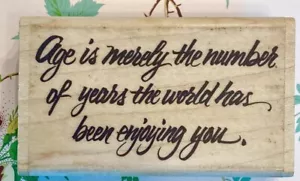 Age is merely the number
of years the world has
been enjoying you.